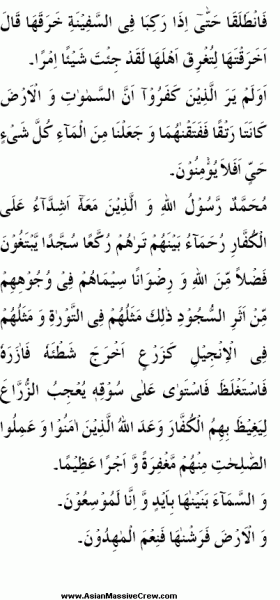 فَانْطَلَقَا حَتّٰىٓ اِذَا رَكِبَا فِى السَّفِيْنَةِ خَرَقَهَا قَالَ
اَخَرَقْتَهَا لِتُغْرِقَ اَهْلَهَا لَقَدْ جِئْتَ شَيْئًا اِمْرًا۔
اَوَلَمْ يَرَ الَّذِيْنَ كَفَرُوْٓا اَنَّ السَّمٰوٰتِ وَ الْاَرْضَ
كَانَتَا رَتْقًا فَفَتَقْنٰهُمَا وَ جَعَلْنَا مِنَ الْمَآءِ كُلَّ شَىْءٍ
حَىٍّ اَفَلَا يُؤْمِنُوْنَ۔
مُحَمَّدٌ رَّسُوْلُ اللهِ وَ الَّذِيْنَ مَعَهٗٓ اَشِدَّآءُ عَلَى
الْكُفَّارِ رُحَمَآءُ بَيْنَهُمْ تَرٰهُمْ رُكَّعًا سُجَّدًا يَّبْتَغُوْنَ
فَضْلًا مِّنَ اللهِ وَ رِضْوَانًا سِيْمَاهُمْ فِىْ وُجُوْهِهِمْ
مِّنْ اَثَرِ السُّجُوْدِ ذٰلِكَ مَثَلُهُمْ فِى التَّوْرٰةِ وَ مَثَلُهُمْ
فِى الْاِنْجِيْلِ كَزَرْعٍ اَخْرَجَ شَطْئَهٗ فَاٰزَرَهٗ
فَاسْتَغْلَظَ فَاسْتَوٰى عَلٰى سُوْقِهٖ يُعْجِبُ الزُّرَّاعَ
لِيَغِيْظَ بِهِمُ الْكُفَّارَ وَعَدَ اللهُ الَّذِيْنَ اٰمَنُوْا وَ عَمِلُوا
الصّٰلِحٰتِ مِنْهُمْ مَّغْفِرَةً وَّ اَجْرًا عَظِيْمًا۔
وَ السَّمَآءَ بَنَيْنٰهَا بِاَيْدٍ وَّ اِنَّا لَمُوْسِعُوْنَ۔
وَ الْاَرْضَ فَرَشْنٰهَا فَنِعْمَ الْمٰهِدُوْنَ۔
www.AsianMassiveCrew.com